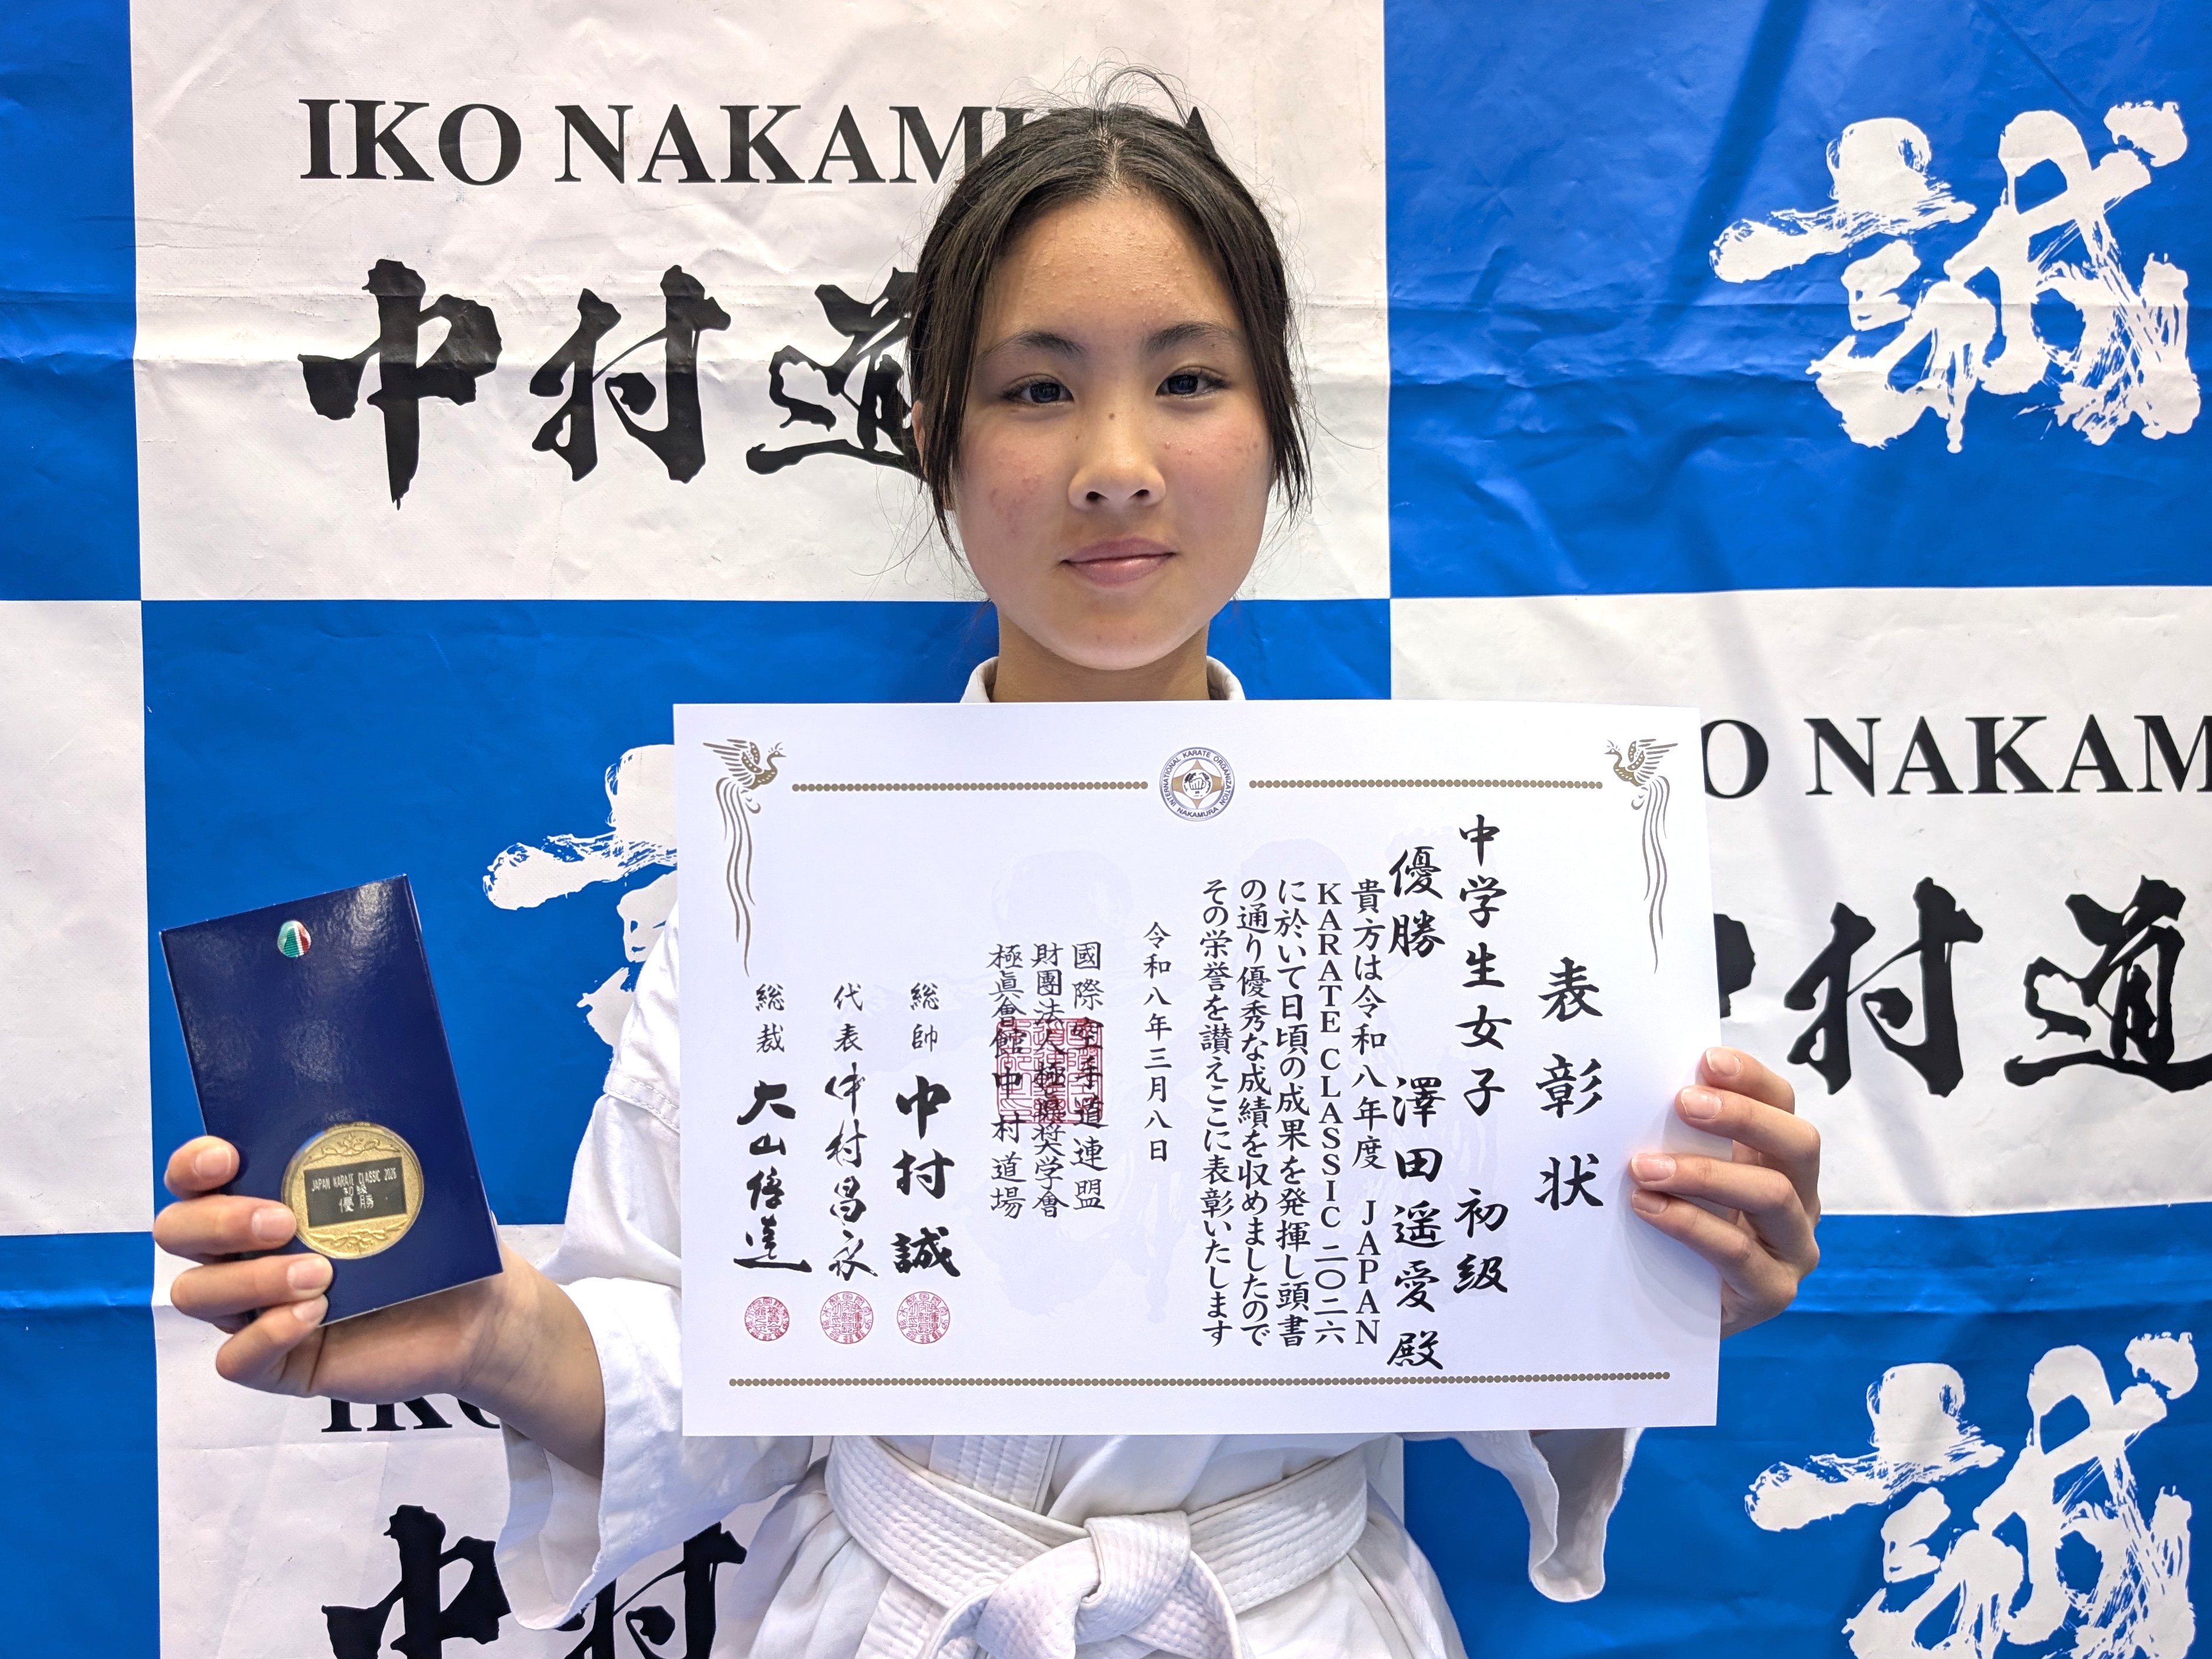 IKO NAKAMURA
中村道
誠
O NAKAM
中村道
誠
中村
INTERNATIONAL KARATE ORGANIZATION
NAKAMURA
表彰状
中学生女子 初級
優勝 澤田遥愛殿
貴方は令和八年度 JAPAN
KARATE CLASSIC 二〇二六
に於いて日頃の成果を発揮し頭書
の通り優秀な成績を収めましたので
その栄誉を讃えここに表彰いたします
令和八年三月八日
國際空手道連盟
財團法人極真奨学會
極眞會館中村道場
総帥 中村 誠
代表 中村昌永
総裁 大山倍達
JAPAN KARATE CLASSIC 2026
初級
優勝